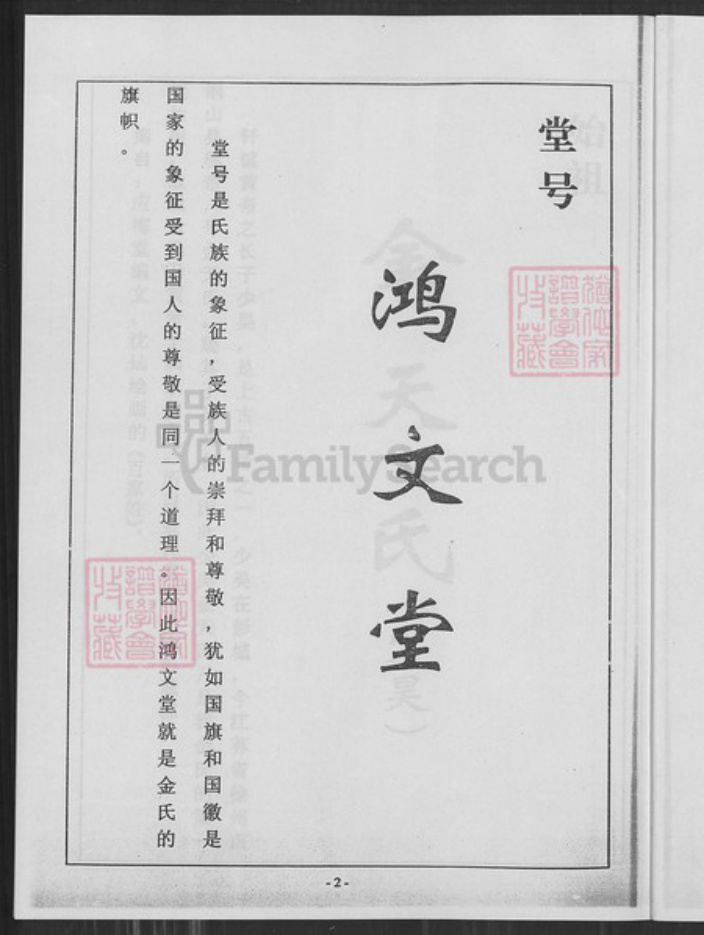 堂号
鸿文堂
堂号是氏族的象征，受族人的崇拜和尊敬，犹如国旗和国徽是
国家的象征受到国人的尊敬是同一个道理。因此鸿文堂就是金氏的
旗帜。
FamilySearch
-2-